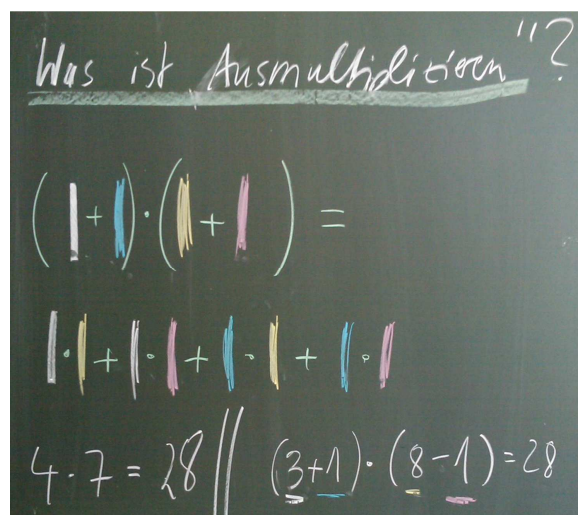 Was ist Ausmultiplizieren"?
( | + | ) · ( | + | ) =
| · | + | · | + | · | + | · |
4 · 7 = 28 || (3+1) · (8-1) = 28